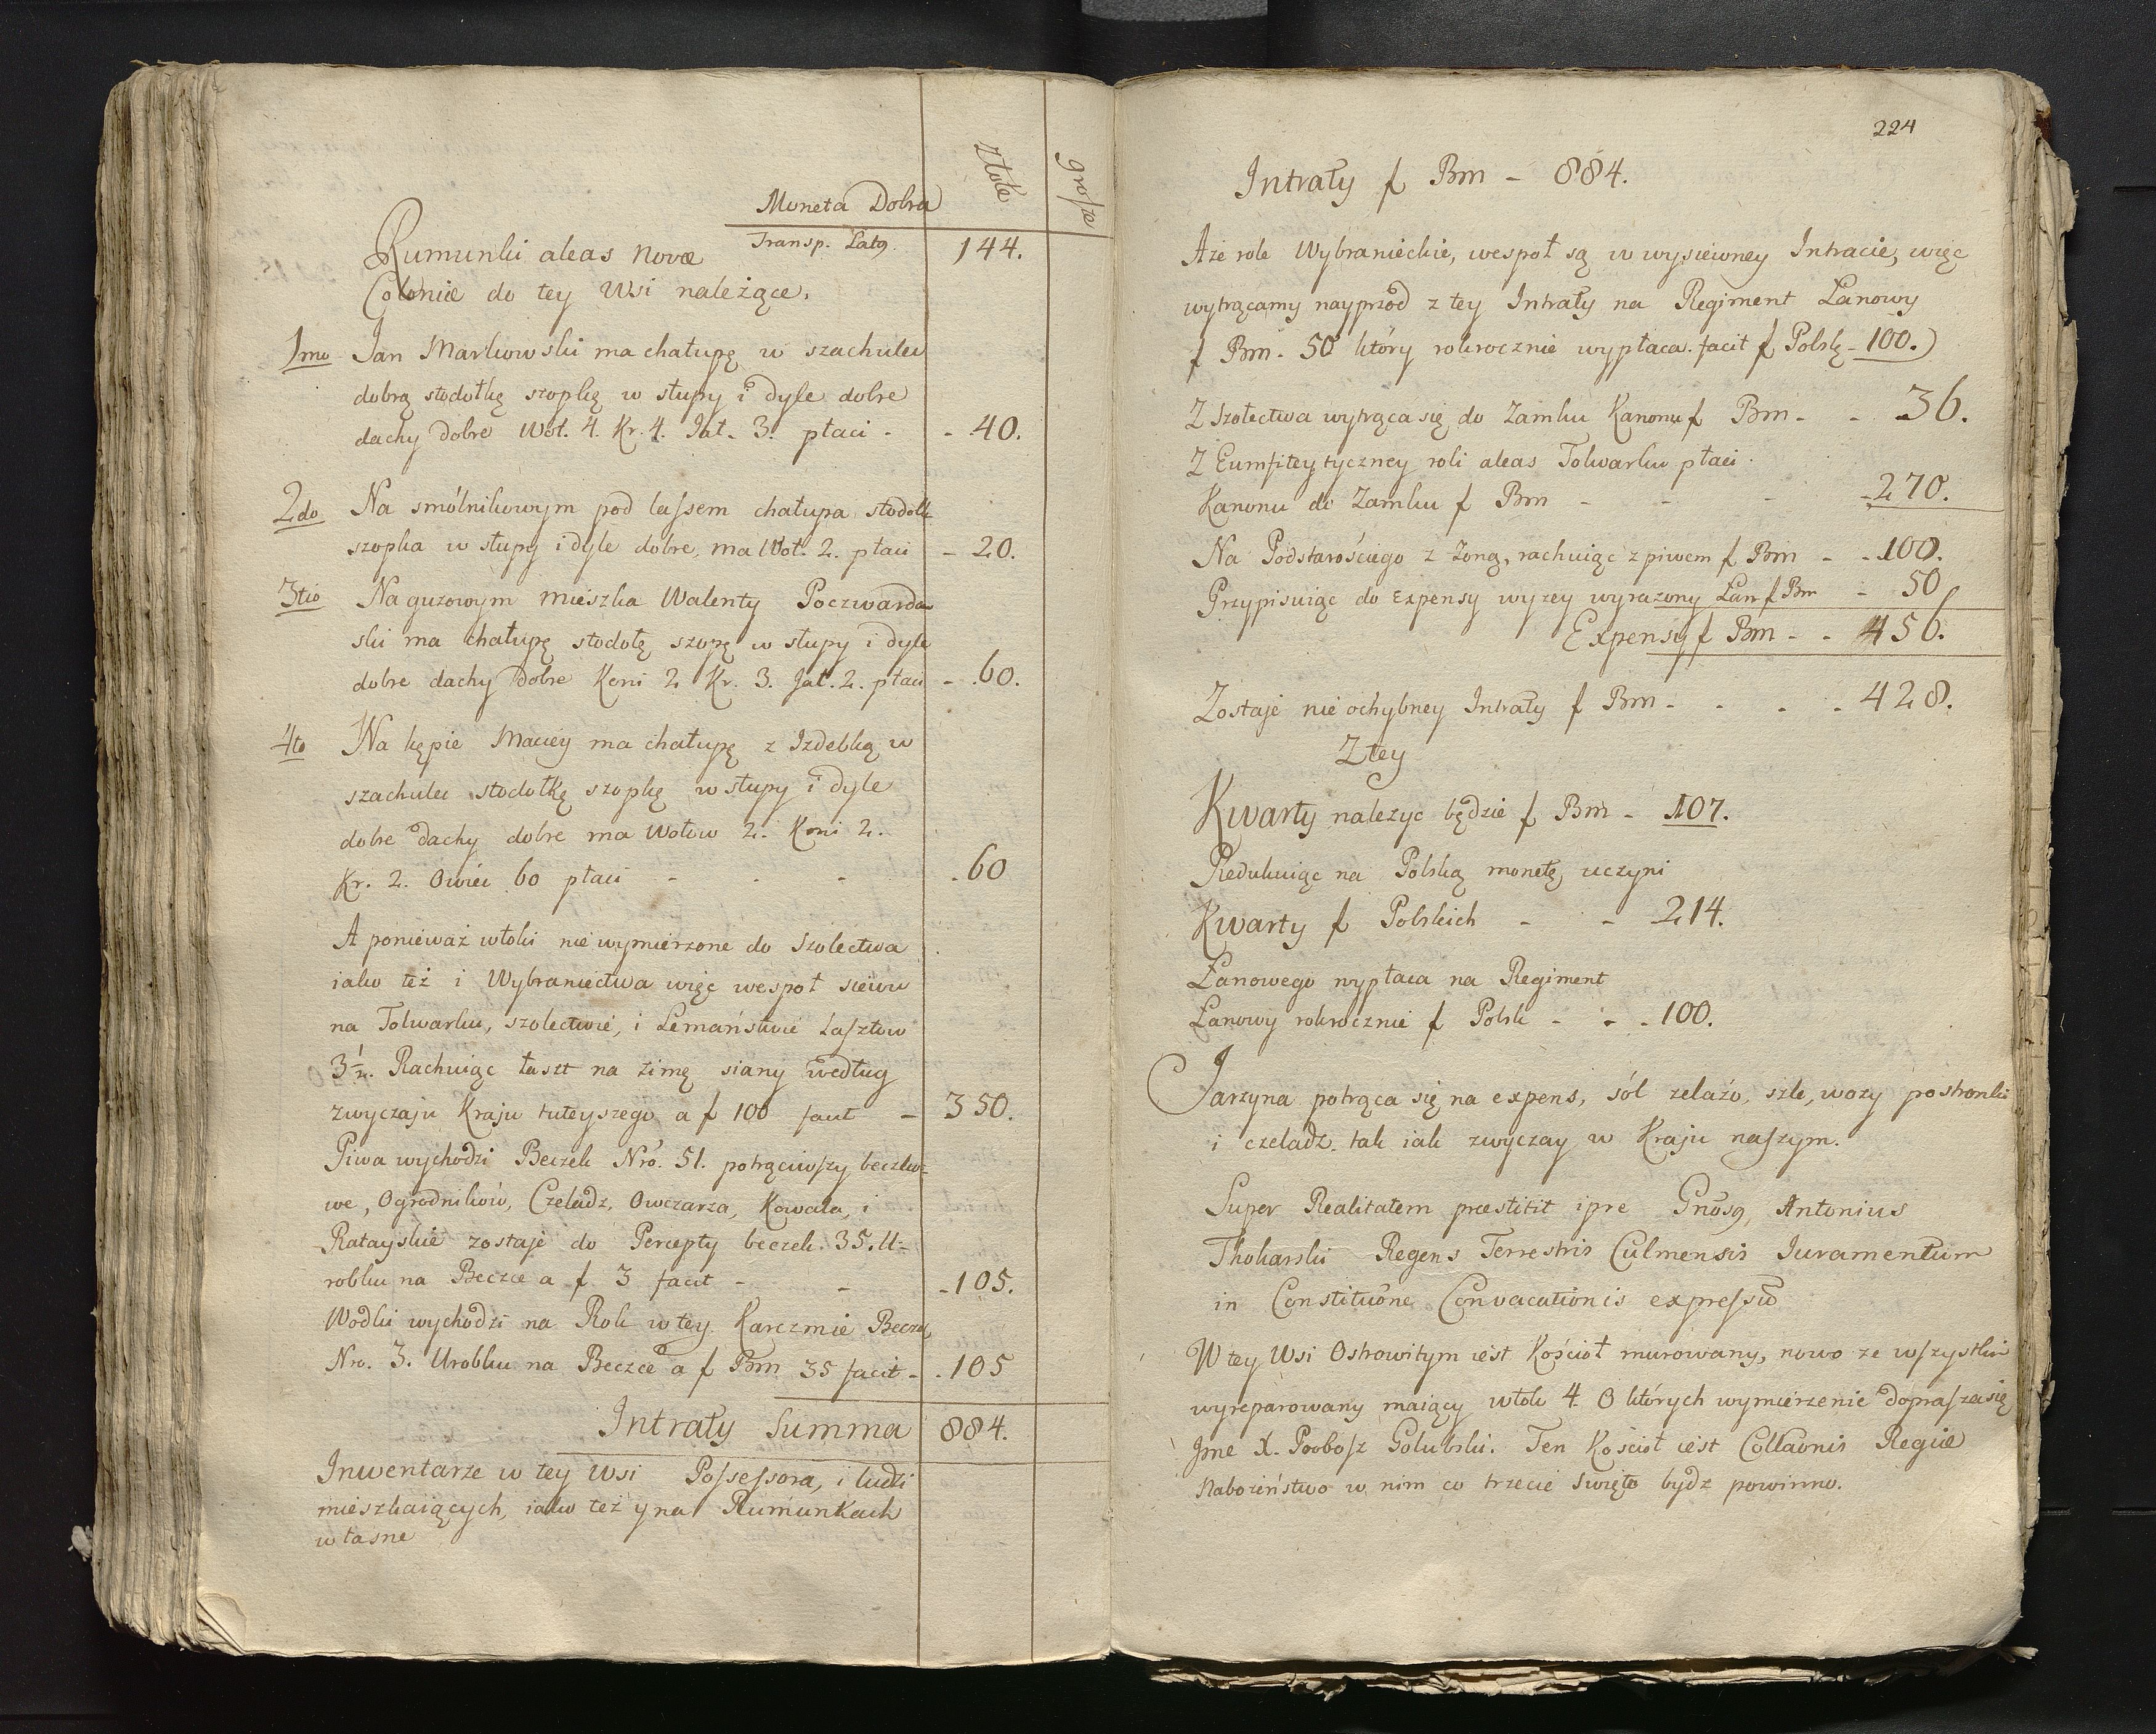 złote
grosze
Moneta Dobra
Transp. Latg. 144.
Rumunki aleas novæ
Coloniæ do tey Wsi należące.
1mo Jan Markowski ma chałupę w szachulec
dobrą stodołkę szopkę w słupy i dyle dobre
dachy dobre Woł. 4. Kr. 4. Jał. 3. płaci - - 40.
2do Na smólnikowym pod lassem chałupa stodołk
szopka w słupy i dyle dobre, ma Woł. 2. płaci - 20.
3tio Na guzowym mieszka Walenty Poczwardo
ski ma chałupę stodołę szopę w słupy i dyle
dobre dachy dobre Koni 2 Kr. 3. Jał. 2. płaci - 60.
4to Na kępie Maciey ma chałupę z Izdebką w
szachulec stodołkę szopkę w słupy i dyle
dobre dachy dobre ma Wołow 2. Koni 2.
Kr. 2. Owiec 60 płaci - - - - 60
A ponieważ włoki nie wymierzone do Szolectwa
iako też i Wybraniectwa więc wespoł siewu
na Folwarku, szolectwie, i Lemaństwie Łasztow
3 1/2. Rachuiąc łaszt na zimę siany według
zwyczaju Kraju tuteyszego a f 100 facit - 350.
Piwa wychodzi Beczek Nro. 51. potrąciwszy beczko=
we, Ogrodnikow, Czeladz, Owczarza, Kowala, i
Ratayskie zostaje do Percepty beczek 35. U=
robku na Beczce a f 3 facit - - - 105.
Wodki wychodzi na Rok w tey Karczmie Beczek
Nro. 3. Urobku na Beczce a f Bm 35 facit - - 105
Intraty Summa 884.
Inwentarze w tey Wsi Possessora, i ludzi
mieszkaiących, iako też y na Rumunkach
własne
224
Intraty f Bm - 884.
A że role Wybranieckie, wespoł są w wysiewney Intracie, więc
wytrącamy nayprzod z tey Intraty na Regiment Łanowy
f Bm - 50 który rokrocznie wypłaca. facit f Polsk - 100.)
Z Szołectwa wytrąca się do Zamku Kanonu f Bm - - 36.
Z Eumfiteytyczney roli aleas Folwarku płaci
Kanonu do Zamku f Bm - - - - 270.
Na Podstarościego z Zoną, rachuiąc z piwem f Bm - - 100.
Przypisuiąc do Expensy wyzey wyrazony Łan f Bm - 50
Expensy f Bm - - 456.
Zostaje nie ochybney Intraty f Bm - - - - 428.
Z tey
Kwarty nalezyc będzie f Bm - 107.
Redukuiąc na Polską monetę uczyni
Kwarty f Polskich - - 214.
Łanowego wypłaca na Regiment
Łanowy rokrocznie f Polsk - - - 100.
Jarzyna potrąca się na expens, sól zelazo, szle, wozy postronki
i czeladz tak iak zwyczay w Kraju naszym.
Super Realitatem præstitit ipse Gnosg Antonius
Thokarski Regens Terrestris Culmensis Iuramentum
in Constitutione Convocationis expressū
W tey Wsi Ostrowitym iest Kościoł murowany, nowo ze wszystkim
wyreparowany maiący włok 4. O których wymierzenie doprasza się
Jme X. Probosz Golubski. Ten Kościoł iest Collaōnis Regiæ
Nabożeństwo w nim co trzecie święto bydz powinno.